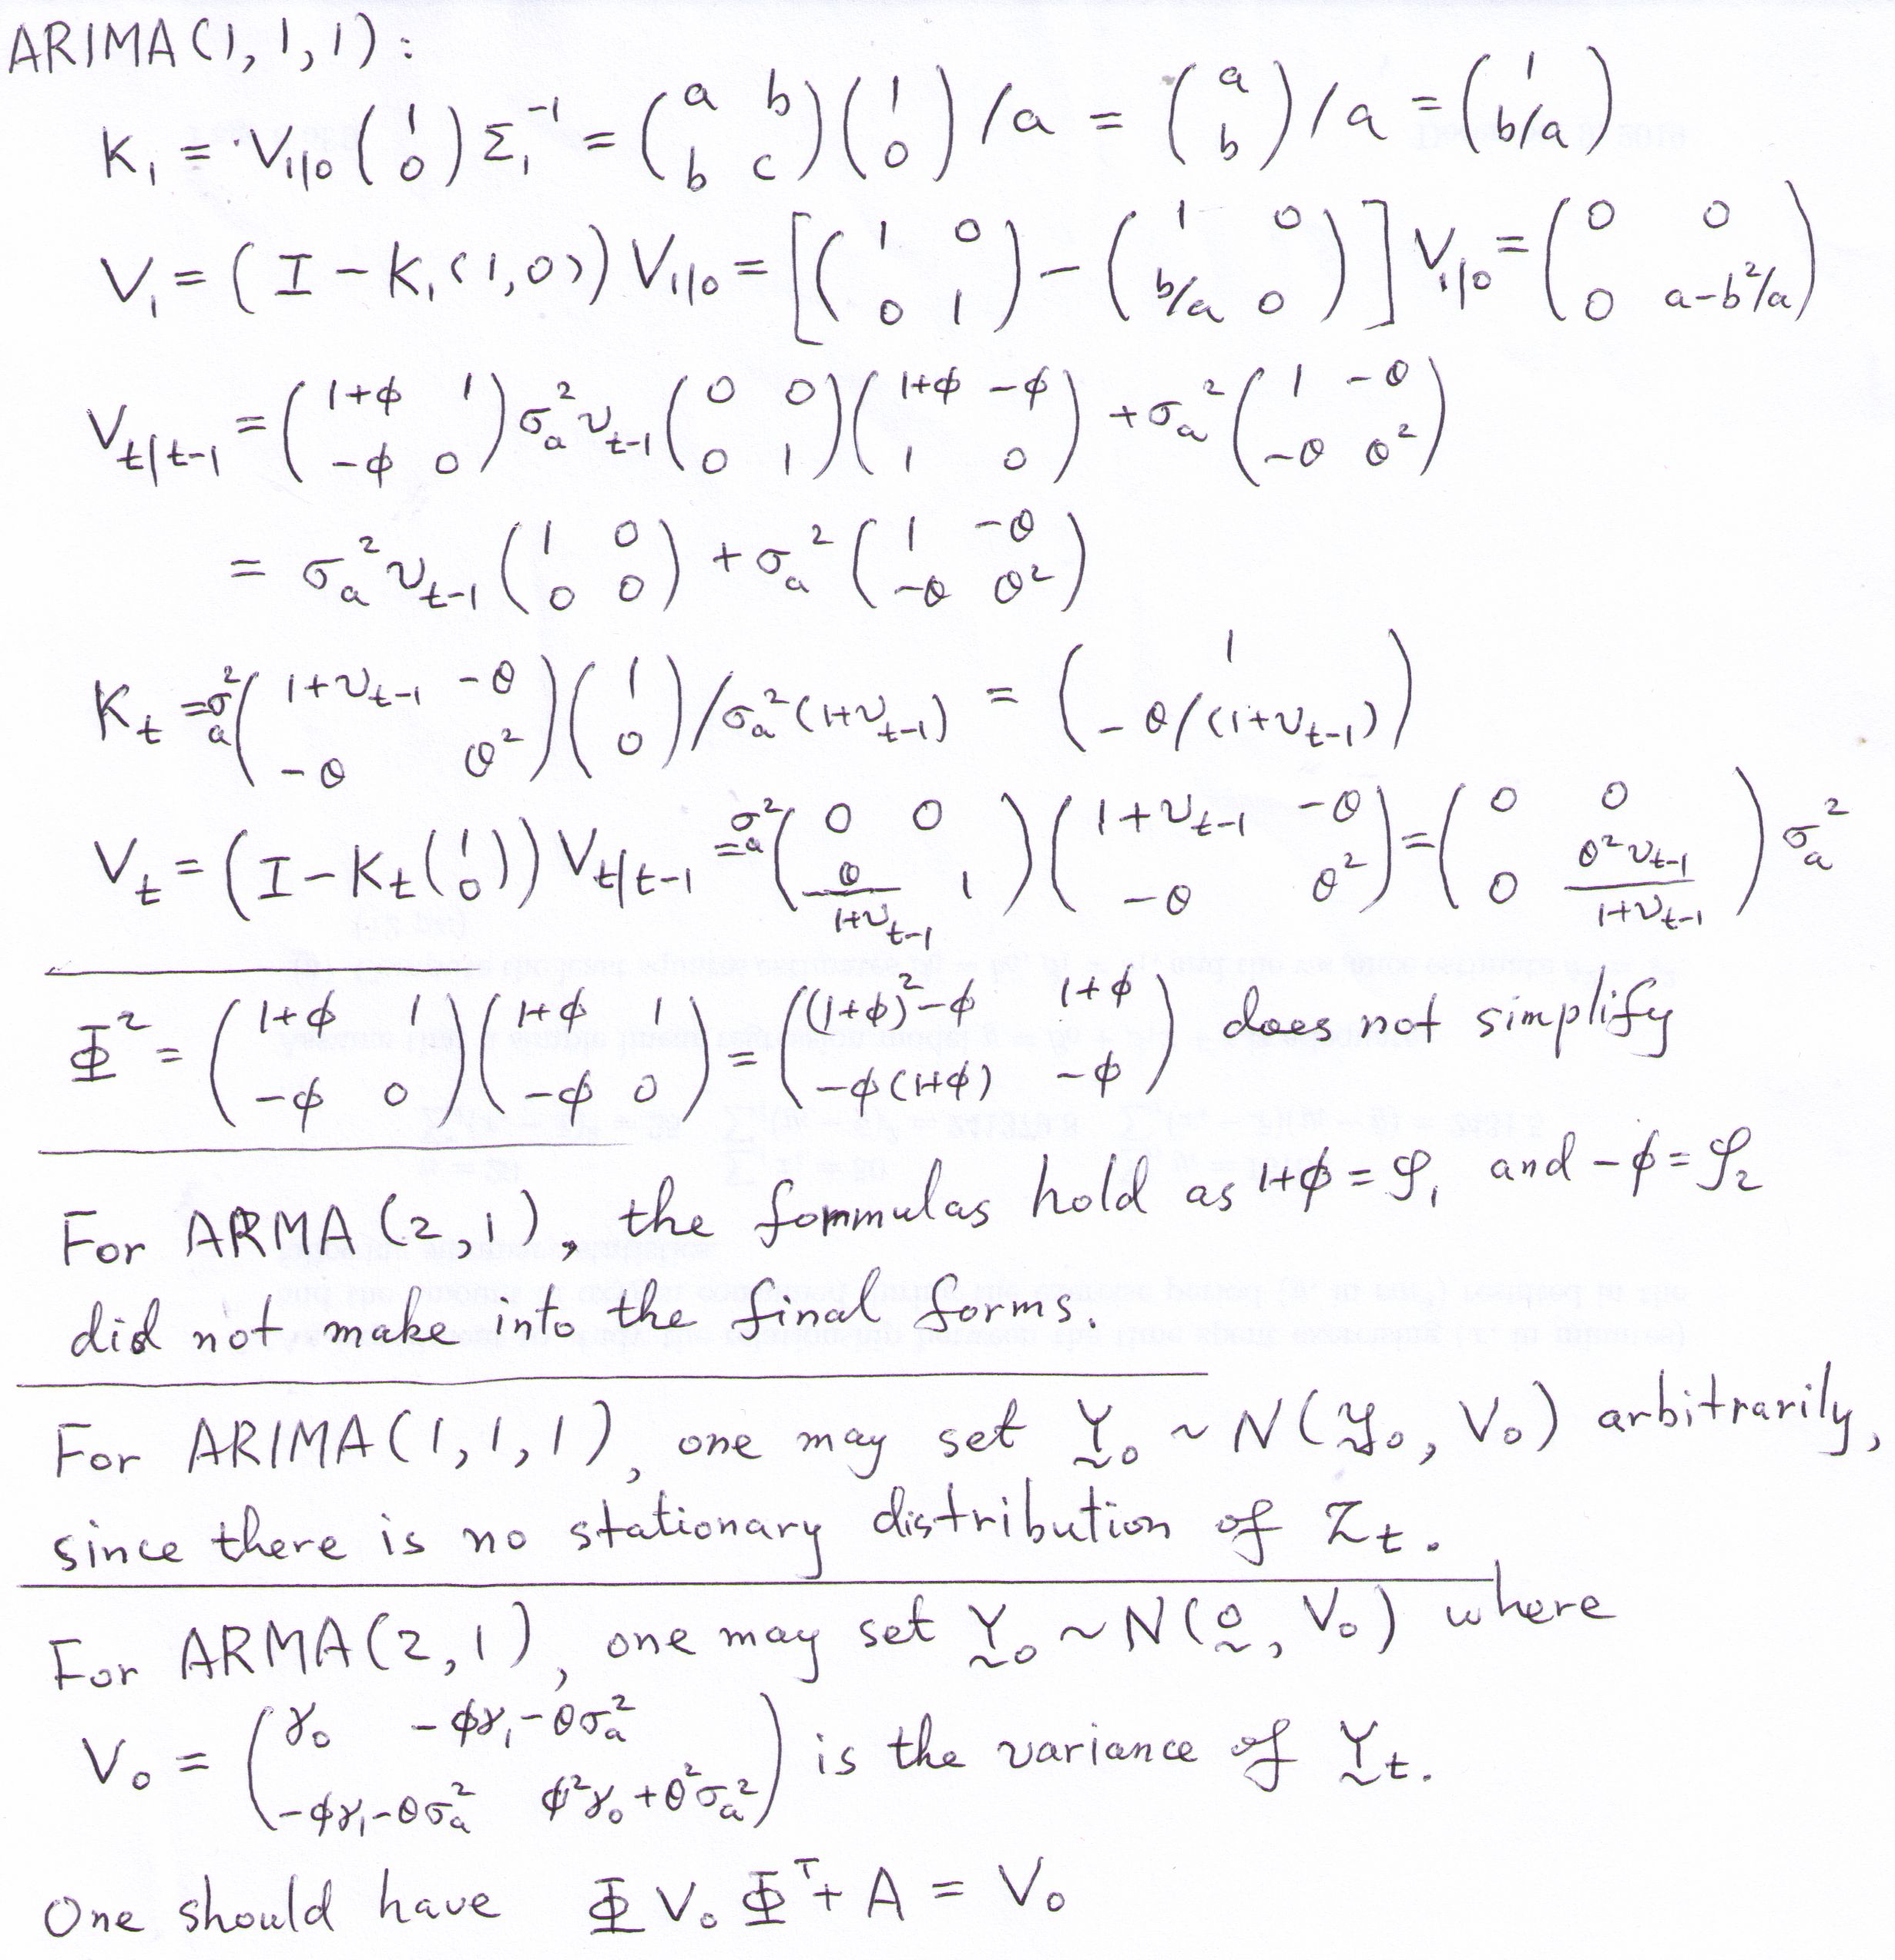 ARIMA(1,1,1):
K₁ = V₁|₀ (1; 0) Σ₁⁻¹ = (a b; b c)(1; 0)/a = (a; b)/a = (1; b/a)
V₁ = (I − K₁(1,0)) V₁|₀ = [(1 0; 0 1) − (1 0; b/a 0)] V₁|₀ = (0 0; 0 a−b²/a)
V_{t|t−1} = (1+φ 1; −φ 0) σₐ² v_{t−1} (0 0; 0 1)(1+φ −φ; 1 0) + σₐ² (1 −θ; −θ θ²)
= σₐ² v_{t−1} (1 0; 0 0) + σₐ² (1 −θ; −θ θ²)
K_t = σₐ² (1+v_{t−1} −θ; −θ θ²)(1; 0)/σₐ²(1+v_{t−1}) = (1; −θ/(1+v_{t−1}))
V_t = (I − K_t(1; 0)) V_{t|t−1} = σₐ² (0 0; θ/(1+v_{t−1}) 1)(1+v_{t−1} −θ; −θ θ²) = (0 0; 0 θ²v_{t−1}/(1+v_{t−1})) σₐ²
Φ² = (1+φ 1; −φ 0)(1+φ 1; −φ 0) = ((1+φ)²−φ 1+φ; −φ(1+φ) −φ) does not simplify
For ARMA(2,1), the formmulas hold as 1+φ = φ₁ and −φ = φ₂
did not make into the final forms.
For ARIMA(1,1,1), one may set Y₀ ~ N(y₀, V₀) arbitrarily,
since there is no stationary distribution of Z_t.
For ARMA(2,1), one may set Y₀ ~ N(0, V₀) where
V₀ = (γ₀ −φγ₁−θσₐ²; −φγ₁−θσₐ² φ²γ₀+θ²σₐ²) is the variance of Y_t.
One should have Φ V₀ Φᵀ + A = V₀